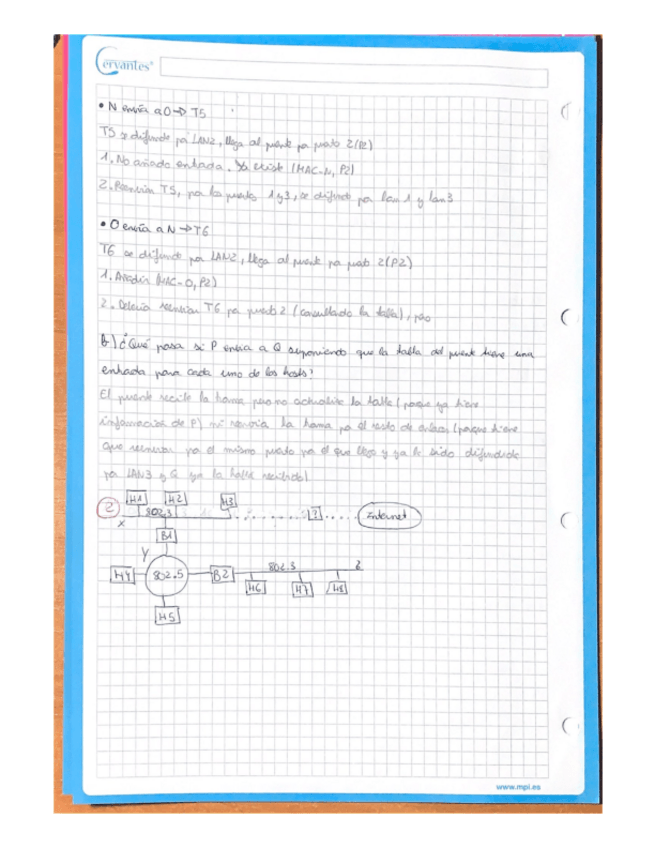 Cervantes®
• N envía a O → T5
T5 se difunde por LAN2, llega al puente por puerto 2 (P2)
1. No añade entrada. Ya existe (MAC-N, P2)
2. Reenvían T5, por los puertos 1 y 3, se difunde por lan 1 y lan 3
• O envía a N → T6
T6 se difunde por LAN2, llega al puente por puerto 2 (P2)
1. Añadir (MAC-O, P2)
2. Debería reenviar T6 por puerto 2 (consultado la tabla), pero
b) ¿Qué pasa si P envia a Q suponiendo que la tabla del puente tiene una
entrada para cada uno de los hosts?
El puente recibe la trama pero no actualiza la tabla (porque ya tiene
información de P) ni reenvía la trama por el resto de enlaces (porque tiene
que reenviar por el mismo puerto por el que llega y ya ha sido difundida
por LAN3 y Q ya la había recibido)
2
H1 H2 H3
X 802.3 ? Internet
B1
Y
H4 802.5 B2 802.3 z
H6 H7 H8
H5
www.mpi.es